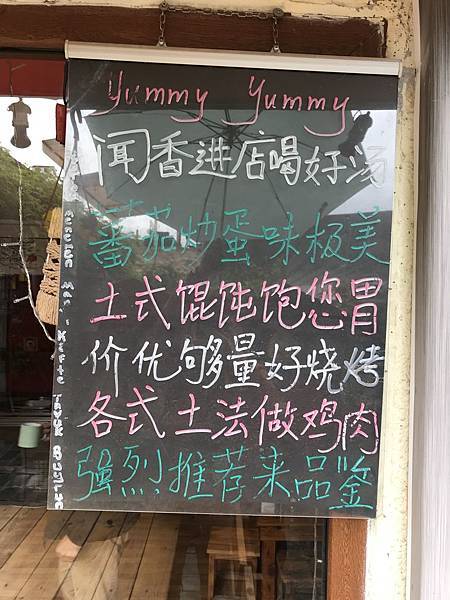 Yummy Yummy
闻香进店喝好汤
蕃茄炒蛋味极美
土式馄饨饱您胃
价优够量好烧烤
各式土法做鸡肉
强烈推荐来品鉴
menemen Mantı Köfte Tavuk